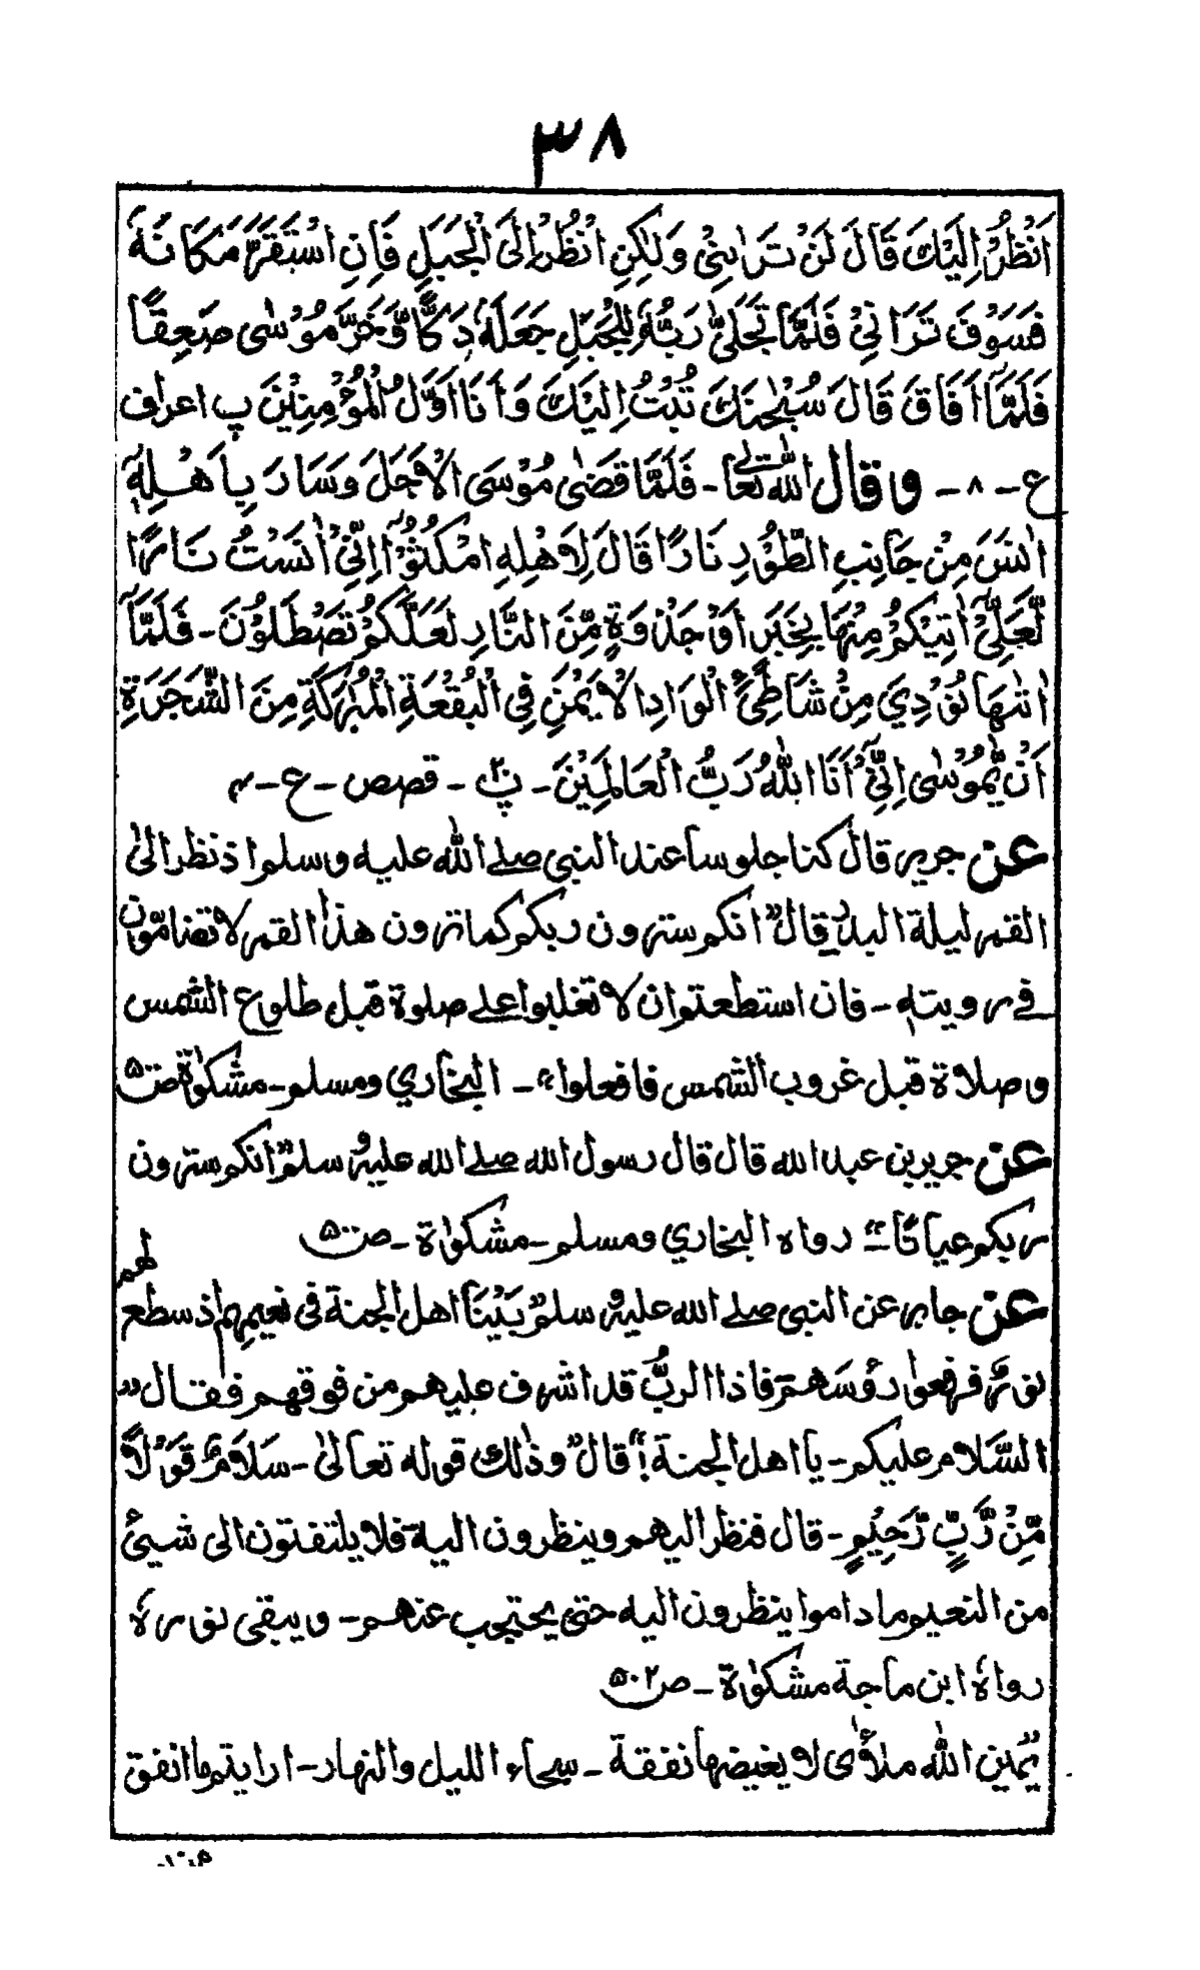 ٣٨
اَنْظُرْ اِلَيْكَ قَالَ لَنْ تَرَانِيْ وَلٰكِنِ انْظُرْ اِلَى الْجَبَلِ فَاِنِ اسْتَقَرَّ مَكَانَهٗ
فَسَوْفَ تَرَانِيْ فَلَمَّا تَجَلّٰى رَبُّهٗ لِلْجَبَلِ جَعَلَهٗ دَكًّا وَّخَرَّ مُوْسٰى صَعِقًا
فَلَمَّآ اَفَاقَ قَالَ سُبْحٰنَكَ تُبْتُ اِلَيْكَ وَاَنَا اَوَّلُ الْمُؤْمِنِيْنَ پ اعراف
ع - ٨ - وقال الله تعالى - فَلَمَّا قَضٰى مُوْسَى الْاَجَلَ وَسَارَ بِاَهْلِهٖٓ
اٰنَسَ مِنْ جَانِبِ الطُّوْرِ نَارًا قَالَ لِاَهْلِهِ امْكُثُوْٓا اِنِّيْٓ اٰنَسْتُ نَارًا
لَّعَلِّيْٓ اٰتِيْكُمْ مِنْهَا بِخَبَرٍ اَوْ جَذْوَةٍ مِّنَ النَّارِ لَعَلَّكُمْ تَصْطَلُوْنَ - فَلَمَّآ
اَتٰىهَا نُوْدِيَ مِنْ شَاطِئِ الْوَادِ الْاَيْمَنِ فِي الْبُقْعَةِ الْمُبٰرَكَةِ مِنَ الشَّجَرَةِ
اَنْ يّٰمُوْسٰى اِنِّيْٓ اَنَا اللهُ رَبُّ الْعَالَمِيْنَ - پ٢٠ - قصص - ع - ٤
عن جرير قال كنا جلوسا عند النبي صلى الله عليه وسلم اذ نظر الى
القمر ليلة البدر فقال "انكم سترون ربكم كما ترون هذا القمر لا تضامّون
في رويته - فان استطعتم ان لا تغلبوا على صلوة قبل طلوع الشمس
وصلاة قبل غروب الشمس فافعلوا" - البخاري ومسلم - مشكوٰة ص٥٠٠
عن جرير بن عبد الله قال قال رسول الله صلى الله عليه وسلم "انكم سترون
ربكم عيانًا" رواه البخاري ومسلم - مشكوٰة - ص٥٠٠
عن جابر عن النبي صلى الله عليه وسلم "بَيْنَا اهل الجنة في نعيمهم اذ سطع لهم
نورٌ فرفعوا رؤسَهم فاذا الربُّ قد اشرف عليهم من فوقهم فقال "
السَّلام عليكم - يا اهل الجنة!" قال "وذٰلك قوله تعالىٰ - سَلَامٌ قَوْلًا
مِّنْ رَّبٍّ رَّحِيْمٍ - قال فنظر اليهم وينظرون اليه فلا يلتفتون الى شيئ
من النعيم ما داموا ينظرون اليه حتى يحتجب عنهم - ويبقى نوره
رواهٗ ابن ماجة مشكوٰة - ص٥٠٢
يَمين الله ملأى لا يغيضها نفقة - سحاء الليل والنهار - ارايتم ما انفق